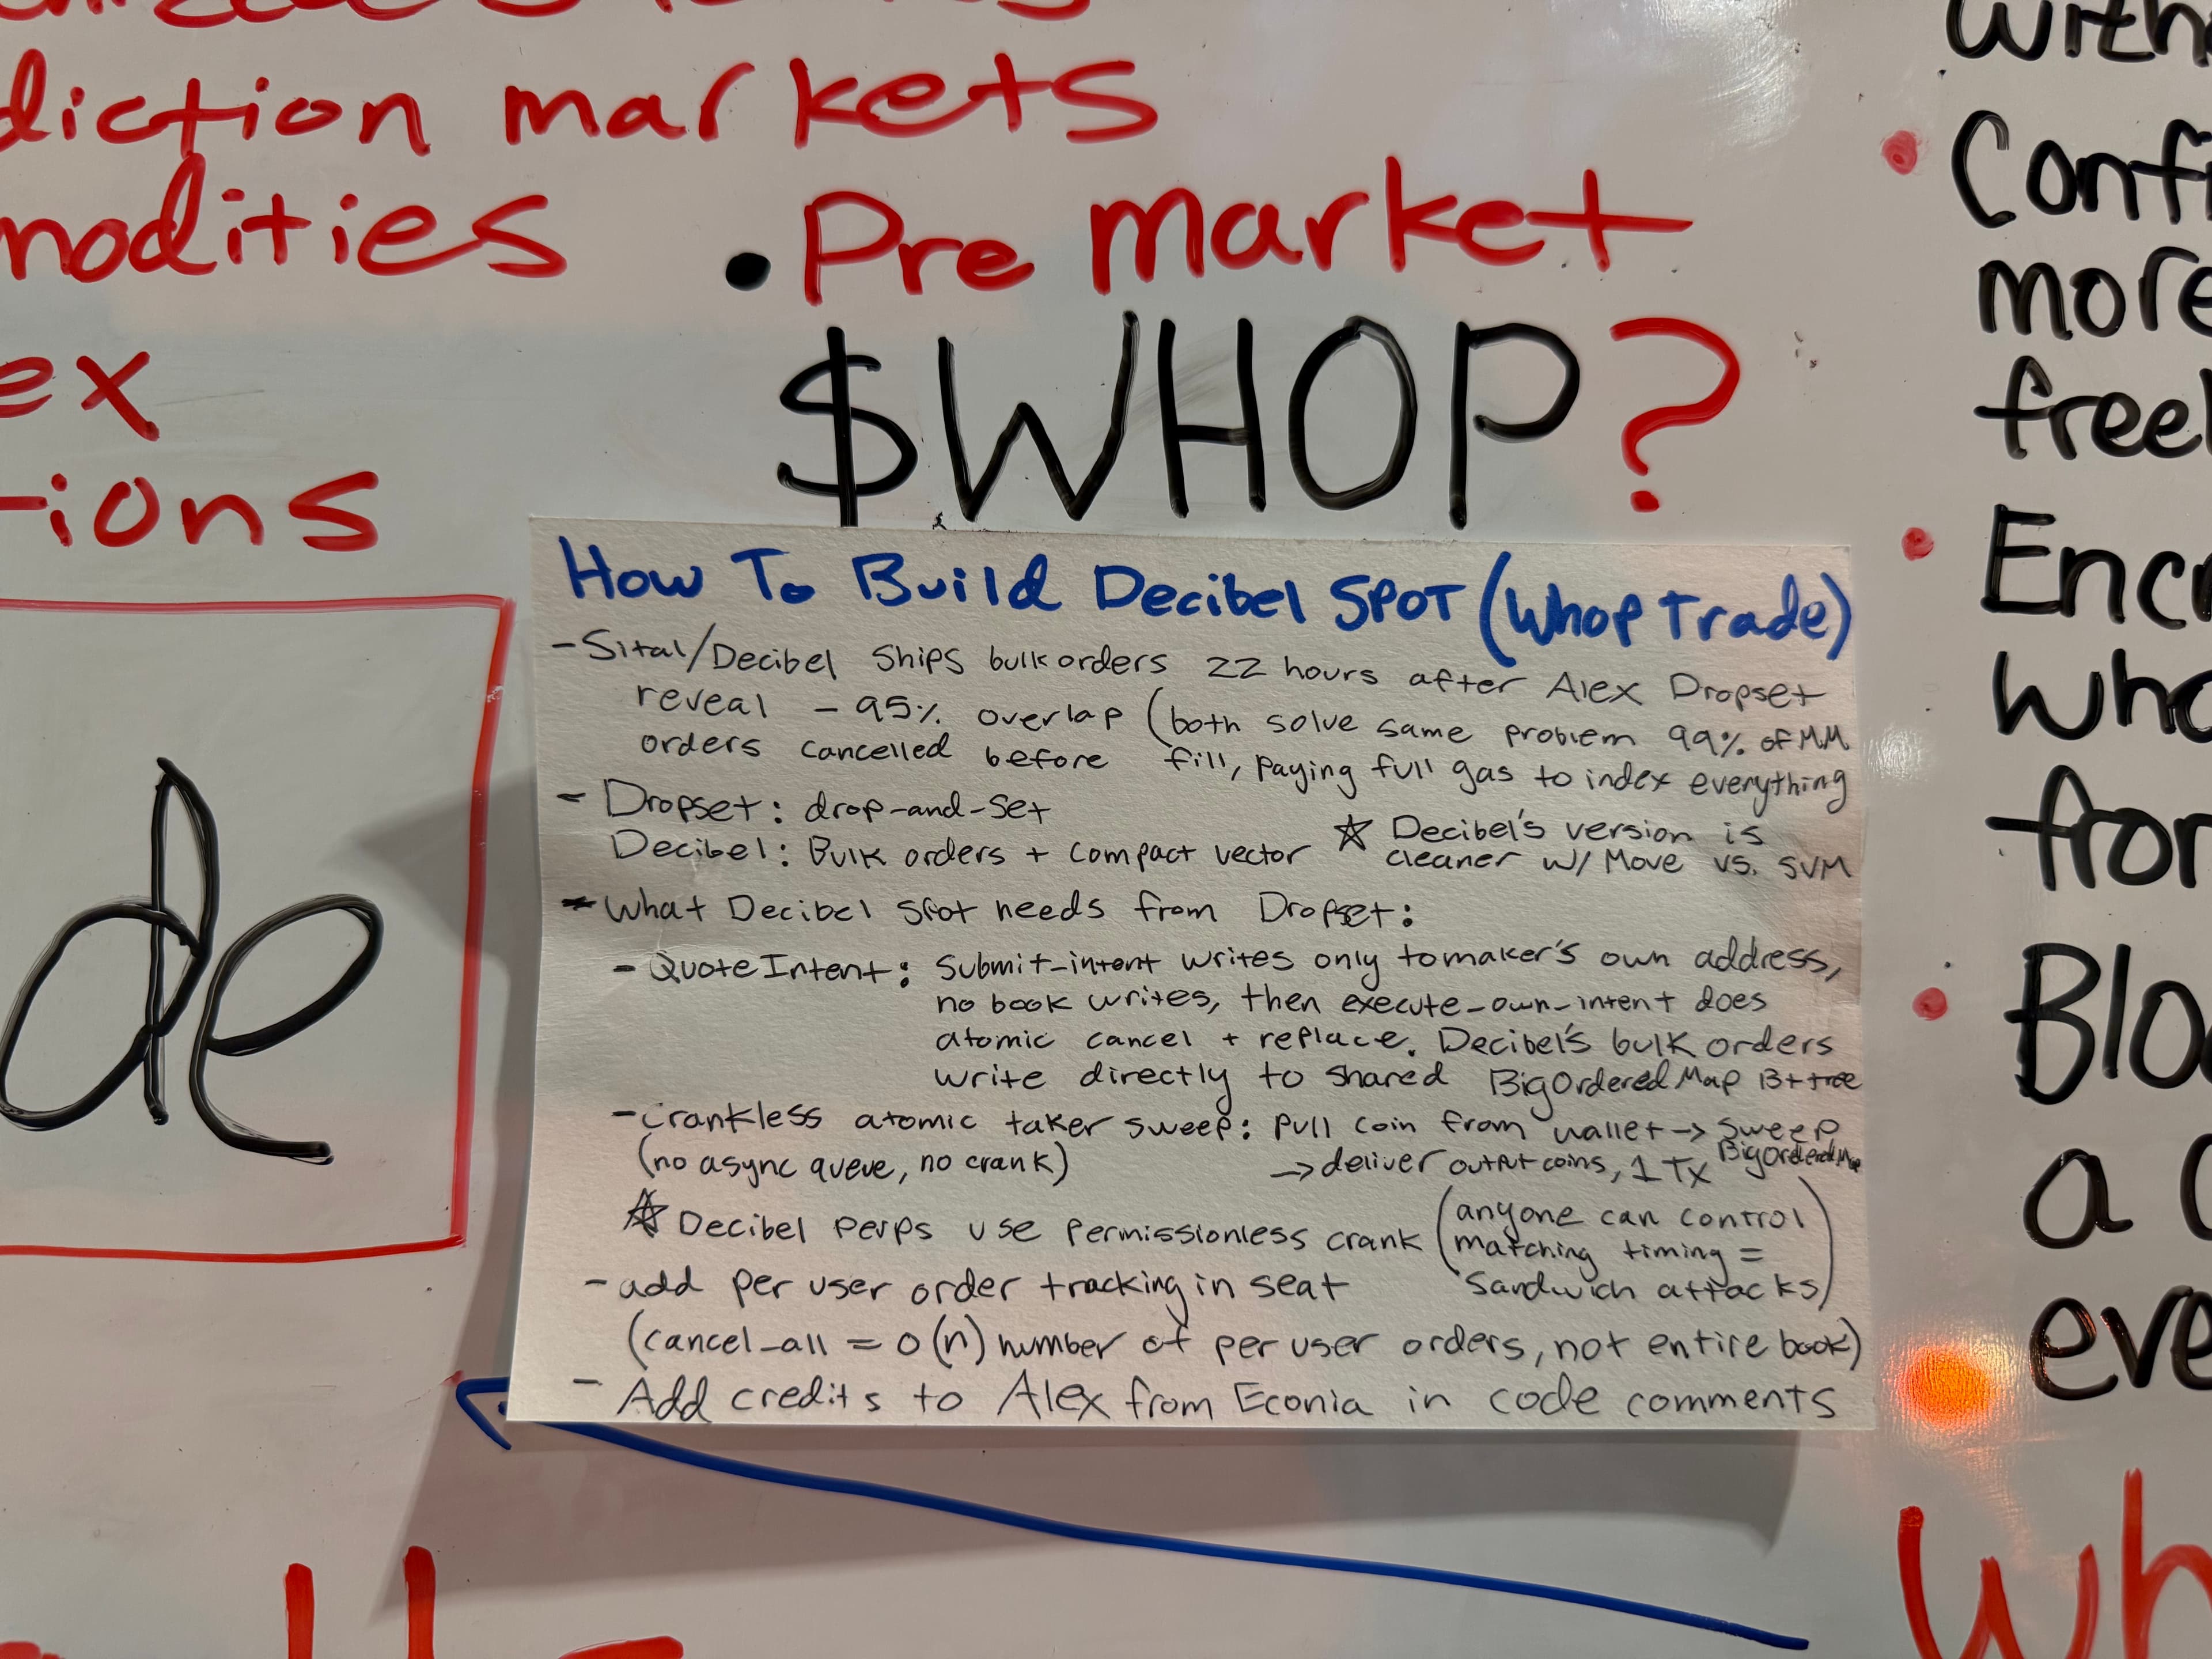 diction markets
modities
• Pre market
ex
$WHOP?
tions
How To Build Decibel SPOT (Whop Trade)
- Sital/Decibel ships bulk orders 22 hours after Alex Dropset
reveal - 95% overlap (both solve same problem 99% of M.M.
orders cancelled before fill, paying full gas to index everything
- Dropset: drop-and-set
Decibel: Bulk orders + compact vector
☆ Decibel's version is
cleaner w/ Move vs. SVM
- What Decibel Spot needs from Dropset:
- Quote Intent: Submit-intent writes only to maker's own address,
no book writes, then execute-own-intent does
atomic cancel + replace. Decibel's bulk orders
write directly to shared BigOrderedMap B+tree
- crankless atomic taker sweep: pull coin from wallet → sweep
BigOrderedMap
(no async queue, no crank) → deliver output coins, 1 Tx
☆ Decibel perps use permissionless crank (anyone can control
matching timing =
sandwich attacks)
- add per user order tracking in seat
(cancel_all = O(n) number of per user orders, not entire book)
- Add credits to Alex from Econia in code comments
de
with
Confi
more
free
Encr
who
from
Blo
a
eve
Wh